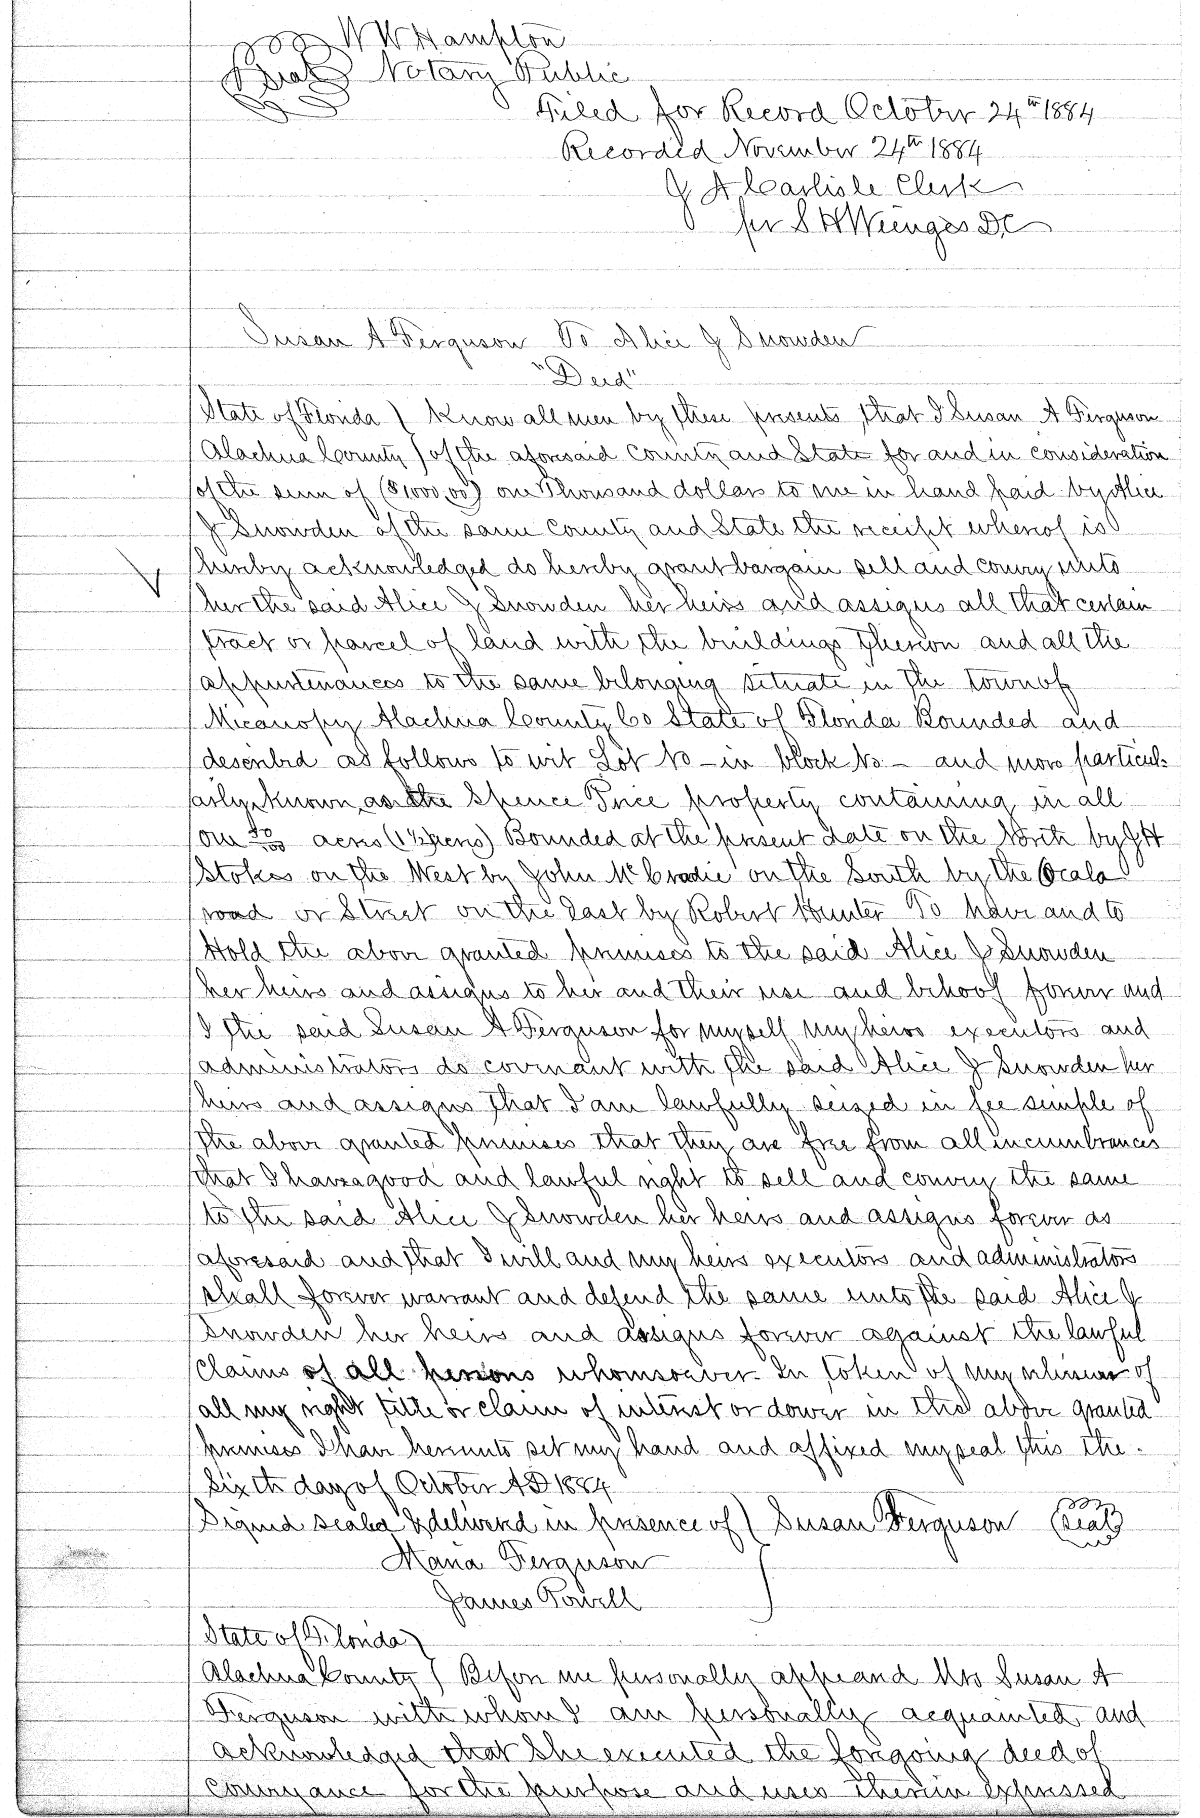 W W Hampton
Seal Notary Public
Filed for Record October 24th 1884
Recorded November 24th 1884
J A Carlisle Clerk
per S H Wienges DC
Susan A Ferguson To Alice J Snowden
"Deed"
State of Florida } Know all men by these presents, that I Susan A Ferguson
Alachua County } of the aforesaid County and State for and in consideration
of the sum of ($1000,00) one Thousand dollars to me in hand paid by Alice
J Snowden of the same County and State the receipt whereof is
hereby acknowledged do hereby grant bargain sell and convey unto
her the said Alice J Snowden her heirs and assigns all that certain
tract or parcel of land with the buildings thereon and all the
appurtenances to the same belonging situate in the town of
Micanopy Alachua County Co State of Florida Bounded and
described as follows to wit Lot No – in block No – and more particul-
arly known as the Spence Price property containing in all
one 50/100 acres (1½ acres) Bounded at the present date on the North by J H
Stokes on the West by John McCradie on the South by the Ocala
road or Street on the East by Robert Hunter To have and to
Hold the above granted premises to the said Alice J Snowden
her heirs and assigns to her and their use and behoof forever and
I the said Susan A Ferguson for myself my heirs executors and
administrators do covenant with the said Alice J Snowden her
heirs and assigns that I am lawfully seized in fee simple of
the above granted premises that they are free from all incumbrances
that I have a good and lawful right to sell and convey the same
to the said Alice J Snowden her heirs and assigns forever as
aforesaid and that I will and my heirs executors and administrators
shall forever warrant and defend the same unto the said Alice J
Snowden her heirs and assigns forever against the lawful
claims of all persons whomsoever In token of my release of
all my right title or claim of interest or dower in the above granted
premises I have hereunto set my hand and affixed my seal this the
Sixth day of October AD 1884
Signed sealed & delivered in presence of } Susan Ferguson (Seal)
Maria Ferguson
James Powell
State of Florida }
Alachua County } Before me personally appeared Mrs Susan A
Ferguson with whom I am personally acquainted and
acknowledged that She executed the foregoing deed of
conveyance for the purpose and uses therein expressed